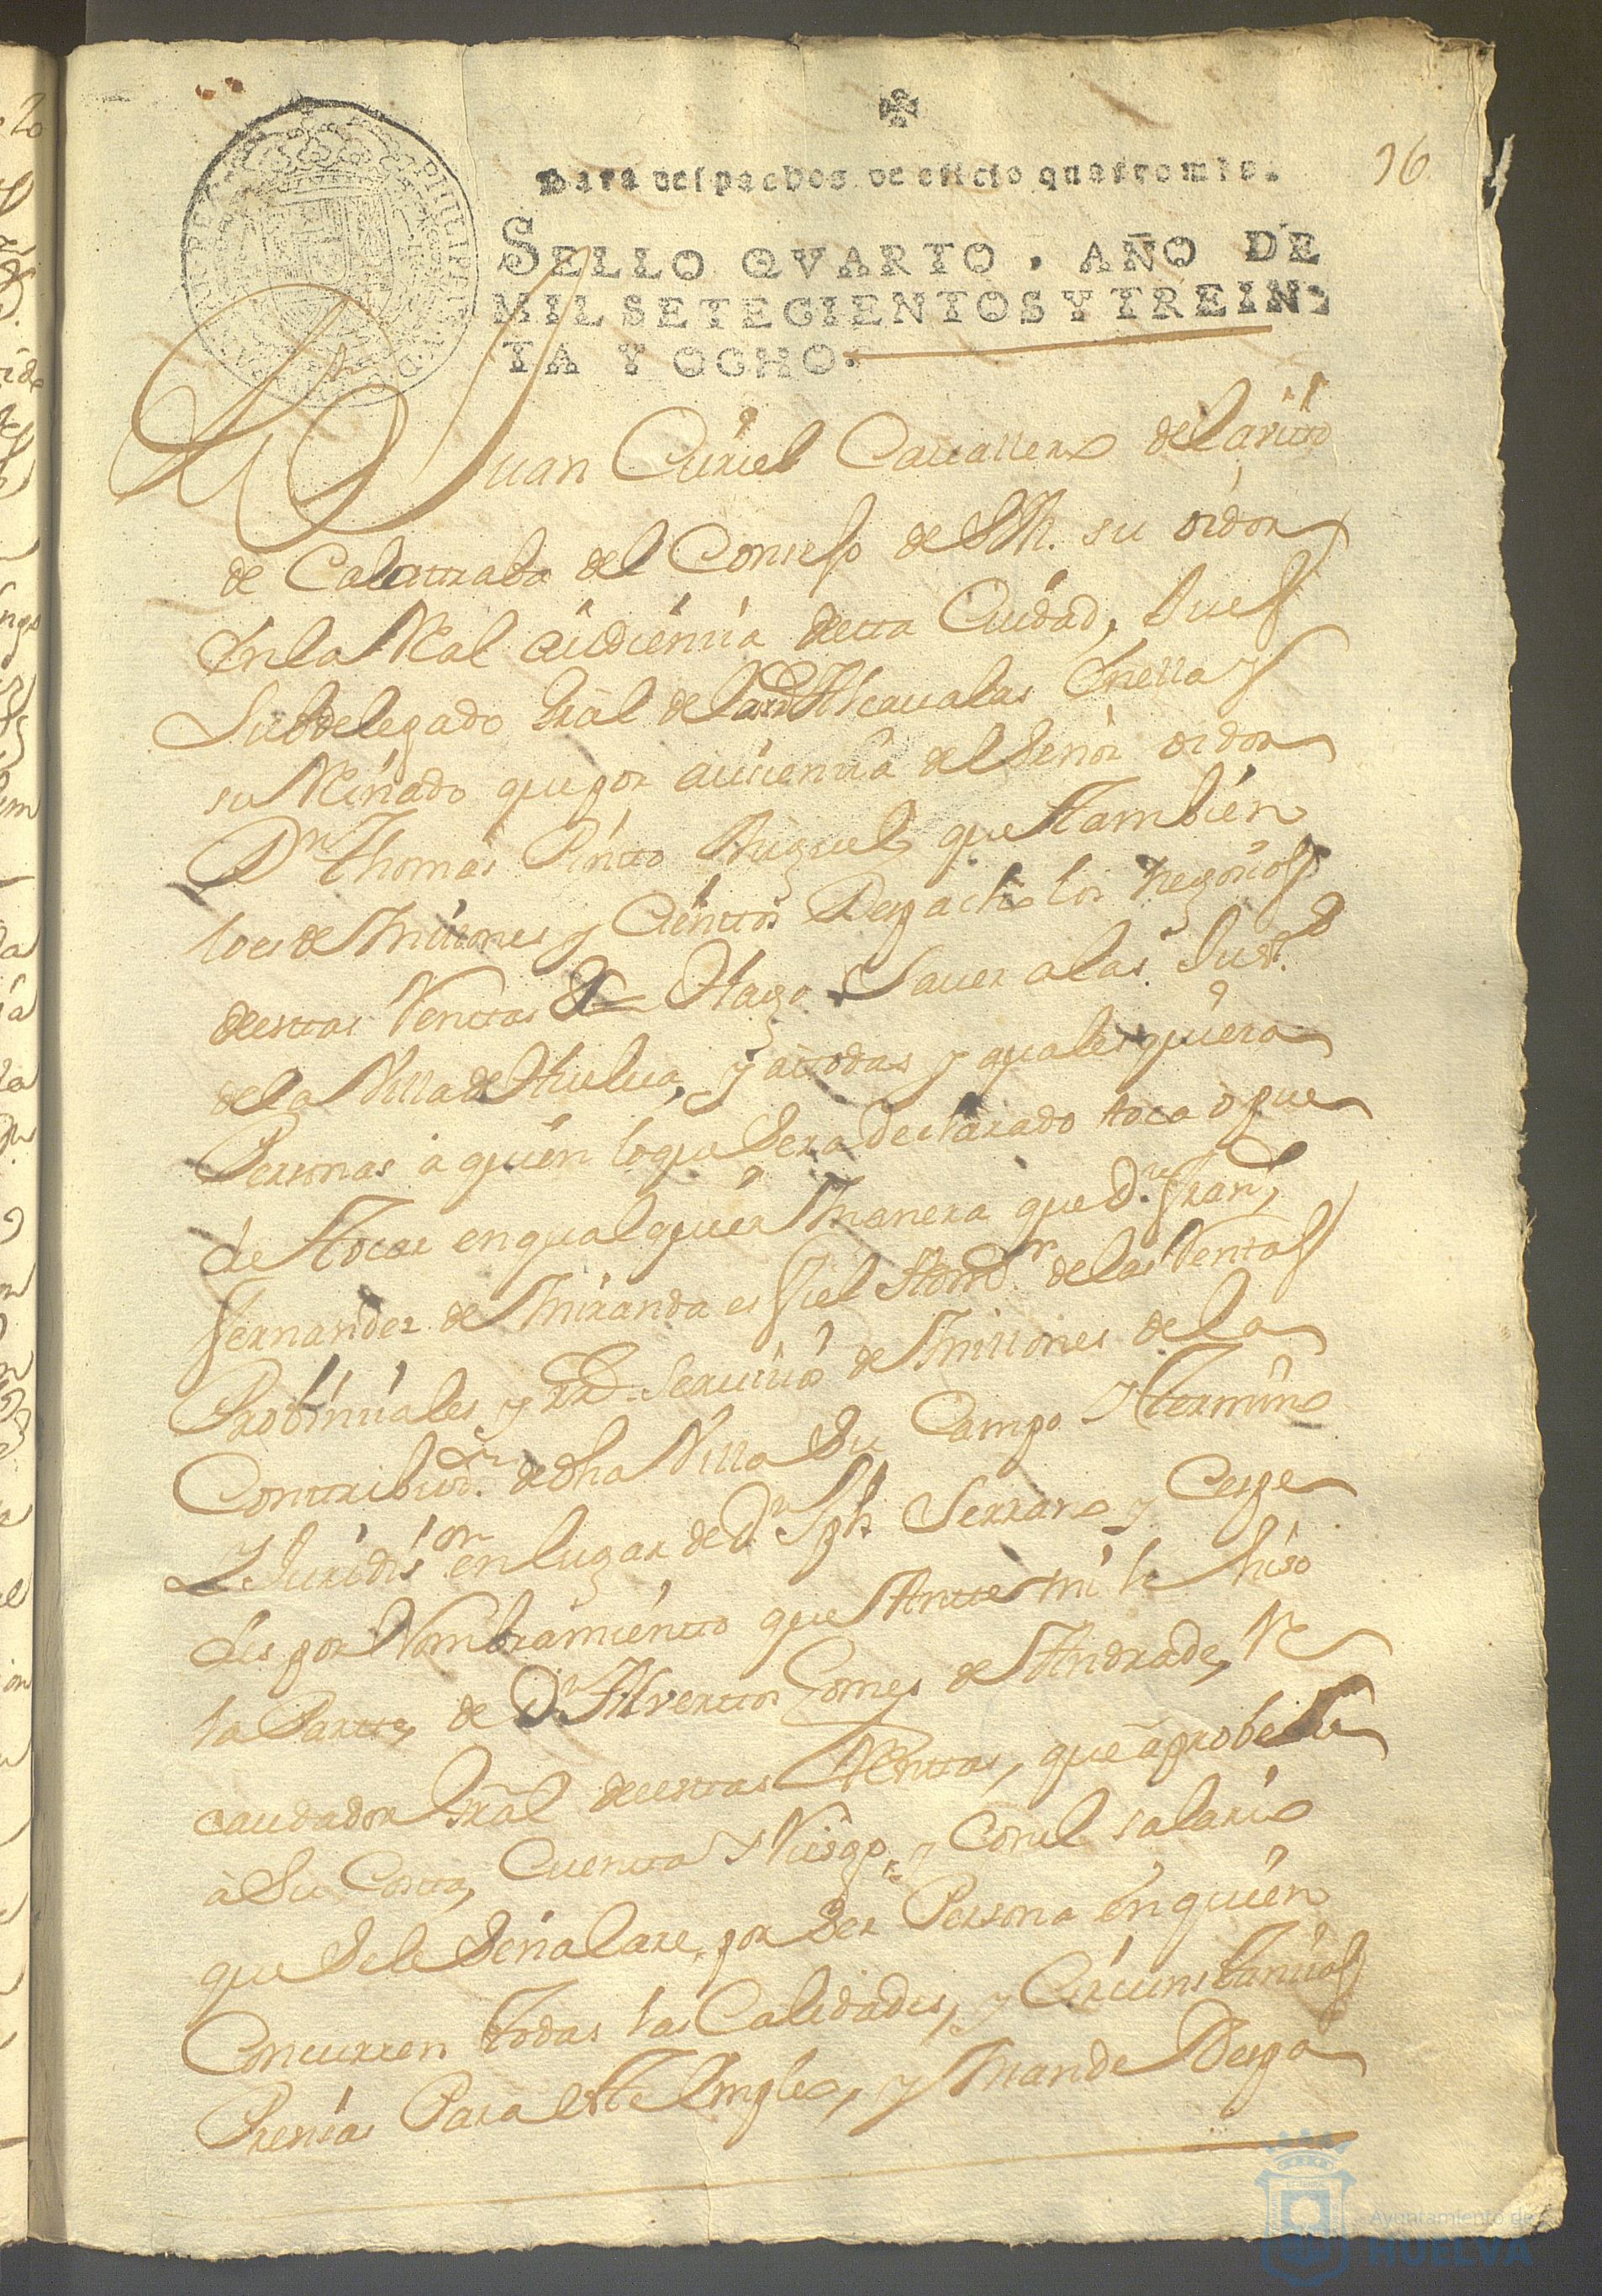 96
Para despachos de oficio quatro mrs.
SELLO QVARTO, AÑO DE
MIL SETECIENTOS Y TREIN-
TA Y OCHO.
Dn Juan Curiel Cauallero del avito
de Calatraba del Consejo de S.M. su oidor
En la Real audiencia desta Ciudad, Juez
Subdelegado Gral de las Rs Alcaualas Enella y
su Reinado que por ausiencia del Señor oidor
Dn Thomas Pinto Miguel, que tambien
lo es de Millones y Cientos Despacho los negocios
de estas Renttas &c Hago Sauer a las Justas
de la Villa de Huelua, y atodas y qualesquiera
Personas a quien lo que Sera declarado toca o pue
de tocar en qualquier manera que Dn Franco
Fernandez de Miranda es fiel Admr de las Rentas
Probinciales y Rs Seruicios de Millones de la
Contribucon de dha Villa Su Campo Ytermino
YJuridision en lugar de Dn Jph Serrano y Cespe
des por Nombramientto que Antte mi le hiso
la Partte, de Dn Alverttos Gomes de Andrade, Re
caudador Gral de estas Renttas, que aprobe Su
a Su Costa, Cuenta y Riesgo, y Con el salario
que Sele Señalare, por Ser Persona en quien
Concurren todas las Calidades, y Circunstancias
Presisas Para este Empleo, y Mande Despa
Ayuntamiento de
HUELVA